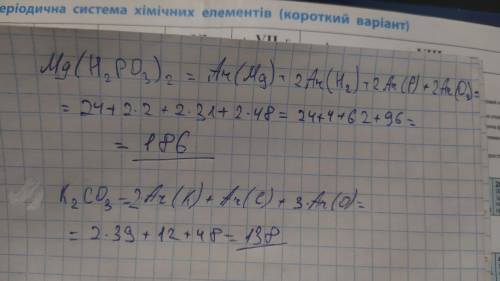 еріодична система хімічних елементів (короткий варіант)
Mg(H₂PO₃)₂ = Ar(Mg) + 2Ar(H₂) + 2Ar(P) + 2Ar(O₃) =
= 24 + 2·2 + 2·31 + 2·48 = 24+4+62+96 =
= 186
K₂CO₃ = 2Ar(K) + Ar(C) + 3·Ar(O) =
= 2·39 + 12 + 48 = 138